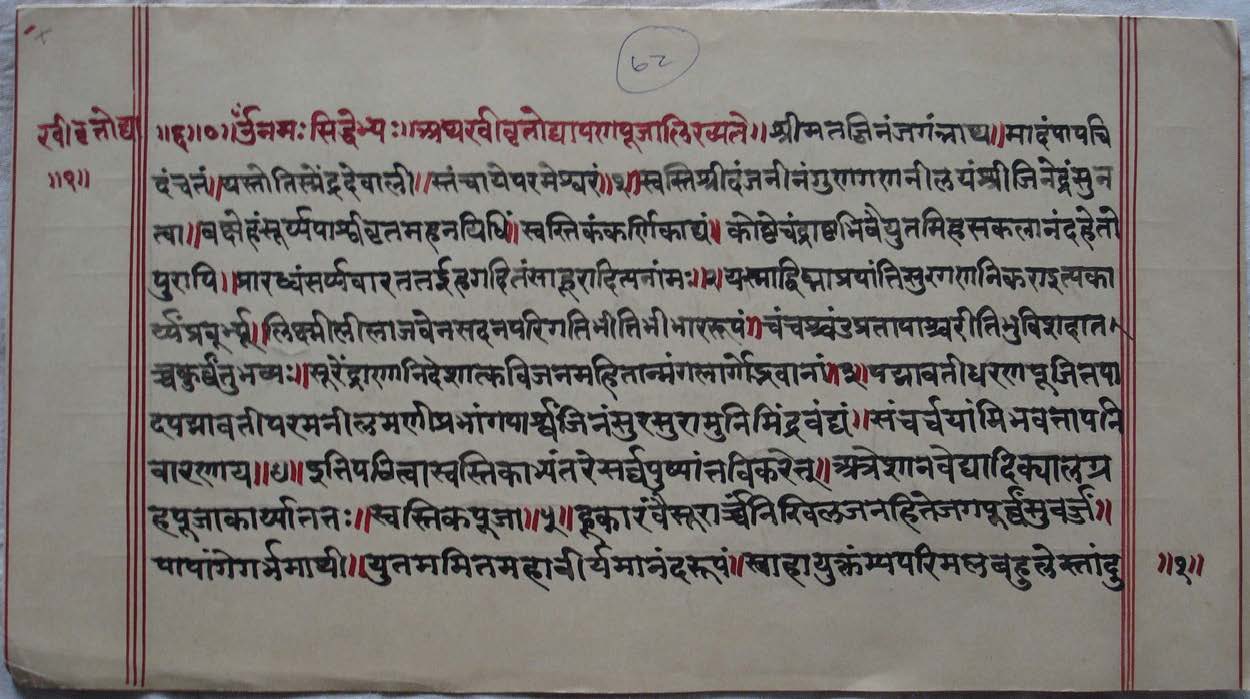 ६२
रवीवृतोद्या ॥६॥०॥ ॐनमःसिद्धेभ्यः॥अथरवीवृतोद्यापणपूजालिख्यते॥श्रीमतजिनंजगंन्नाथ॥मादंपापचि
॥१॥ दंचतं॥यस्तोतिस्मेंद्रदेवाली॥स्तंचायेपरमेश्वरं॥१॥स्वस्तिश्रीदंजनीनंगुणगणनीलयंश्रीजिनेद्रंसुन
त्वा॥वक्षेहंसूर्य्यपार्श्ववृतमहनविधिं॥स्वस्तिकंकर्णिकाद्यं॥कोष्ठेचंद्राष्टभिवैयुतमिहसकलानंदहेतो
पुरापि॥प्रारध्यंसर्य्यवारततईहगदितंसाहरादित्यनांमः॥२॥यस्माद्विघ्नाप्रयांतिसुरगणनिकराइत्यका
र्य्यंप्रचूर्भ्यू॥लिक्ष्मीलीलाजवेनसदनपरिगतिभीतिभीभाररूपं॥चंचश्चंउप्रतापाश्चरीतिभुविशदात
च्चकुर्वंतुभव्यः॥सूरेंद्राणानिदेशात्कविजनमहितान्मंगलार्गोद्भवानां॥३॥पद्मावतीधरणपूजितपा
दपद्मावतीपरमनीलमणीप्रभांगपार्श्वजिनंसुरसुरामुनिमिंद्रवंद्यं॥संचर्चयांमिभवत्तापनि
वारणाय॥४॥इतिपठित्वास्वस्तिकाभ्यंतरेसर्वपुष्पांतविकरेत्॥अत्रेशानवेद्यादिक्पालग्र
हपूजाकार्य्याततः॥स्वस्तिकपूजा॥५॥ह्रकारंवैसूरार्च्चंनिखिलजनहितेजगपूर्वंसुवर्जं॥
पापांगेगर्भमाथी॥युतममितमहावीर्यमानंदरूपं॥स्वाहायुक्तंम्यपरिमलबहुलेस्तांदु ॥१॥